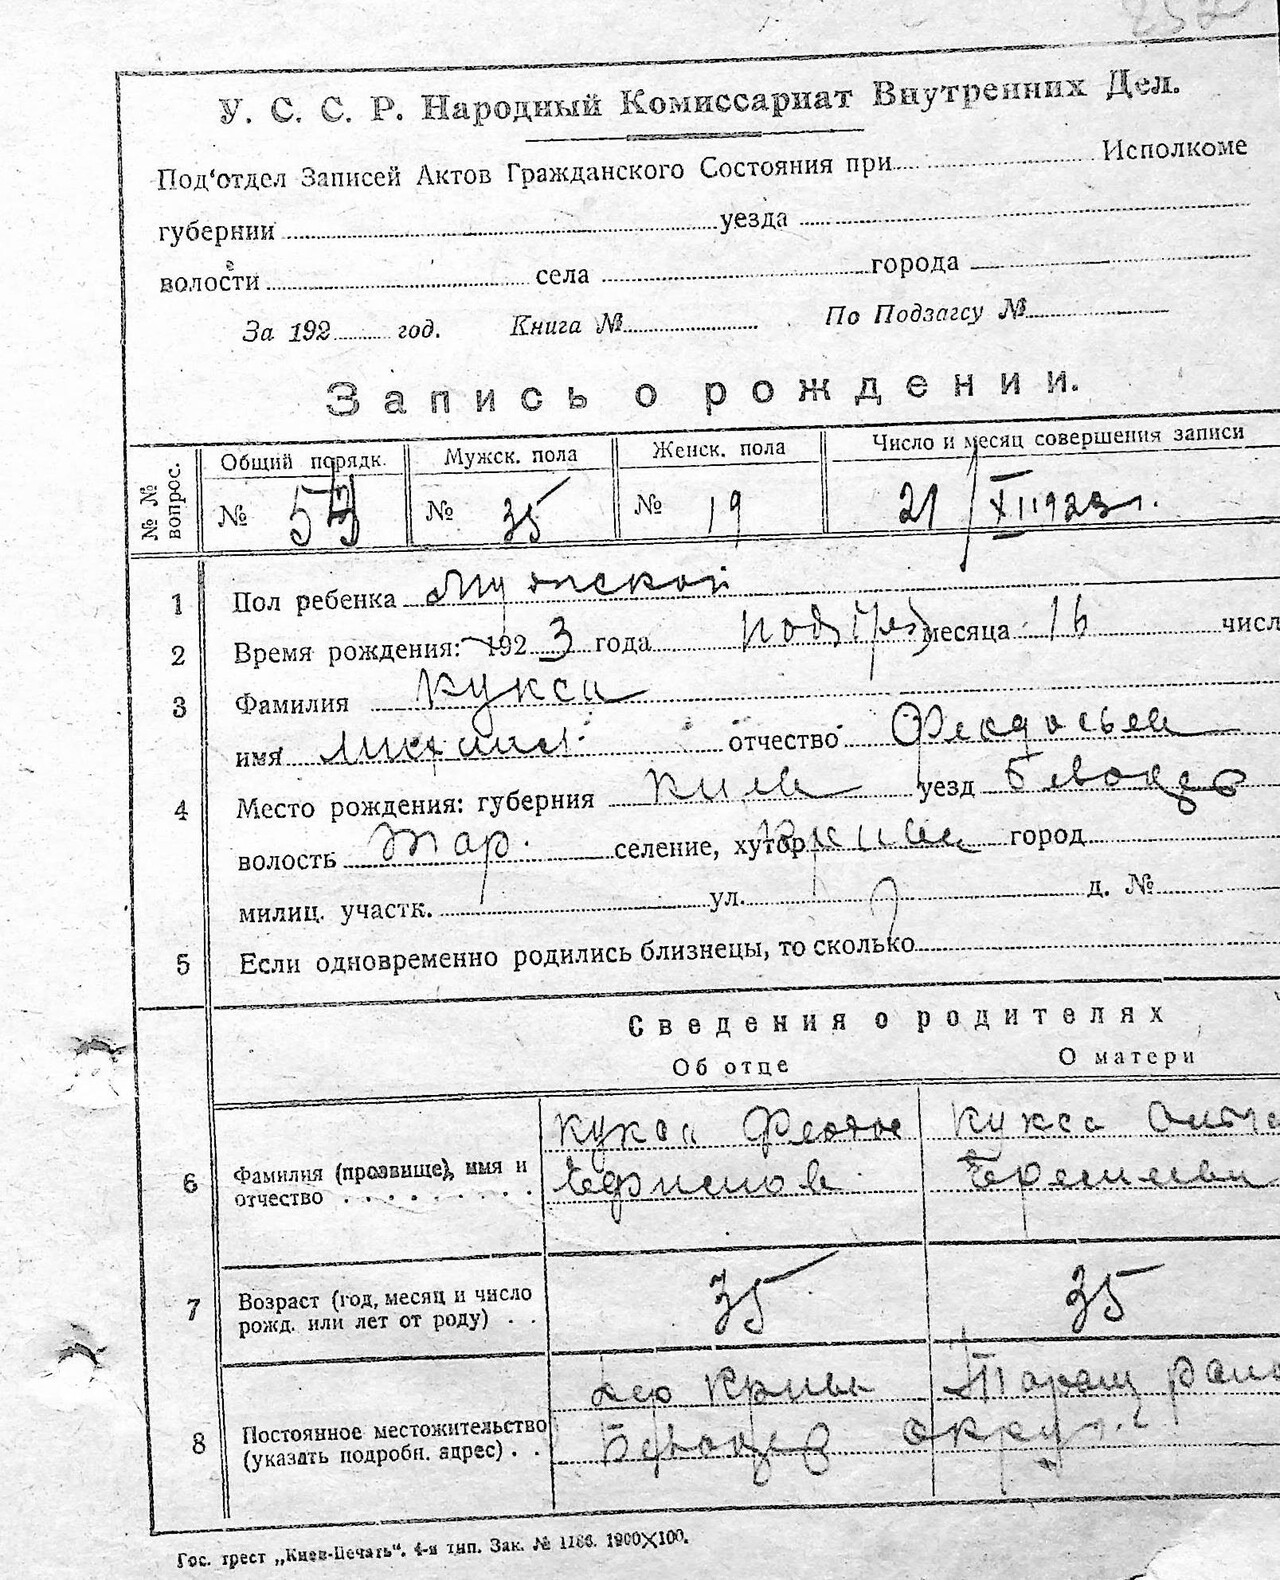 У. С. С. Р. Народный Комиссариат Внутренних Дел.
Под‘отдел Записей Актов Гражданского Состояния при Исполкоме
губернии уезда
волости села города
За 192 год. Книга № По Подзагсу №
Запись о рождении.
№ № вопрос. Общий порядк. Мужск. пола Женск. пола Число и месяц совершения записи
№ 54 № 35 № 19 21/XI 1923 г.
1 Пол ребенка Мужской
2 Время рождения: 1923 года месяца 16 числ
3 Фамилия Кукса
имя Михаил отчество Феодосьев
4 Место рождения: губерния Киев уезд Белоцер
волость Тар. селение, хутор Крива город
милиц. участк. ул. д. №
5 Если одновременно родились близнецы, то сколько
Сведения о родителях
Об отце О матери
6 Фамилия (прозвище), имя и отчество
Кукса Феодос Кукса
Ефимов
7 Возраст (год, месяц и число рожд. или лет от роду) . .
35 35
8 Постоянное местожительство (указать подробн. адрес) . .
Крива Таращ рай
Белоцер округ.
Гос. трест „Киев-Печать“. 4-я тип. Зак. № 1186. 1900×100.